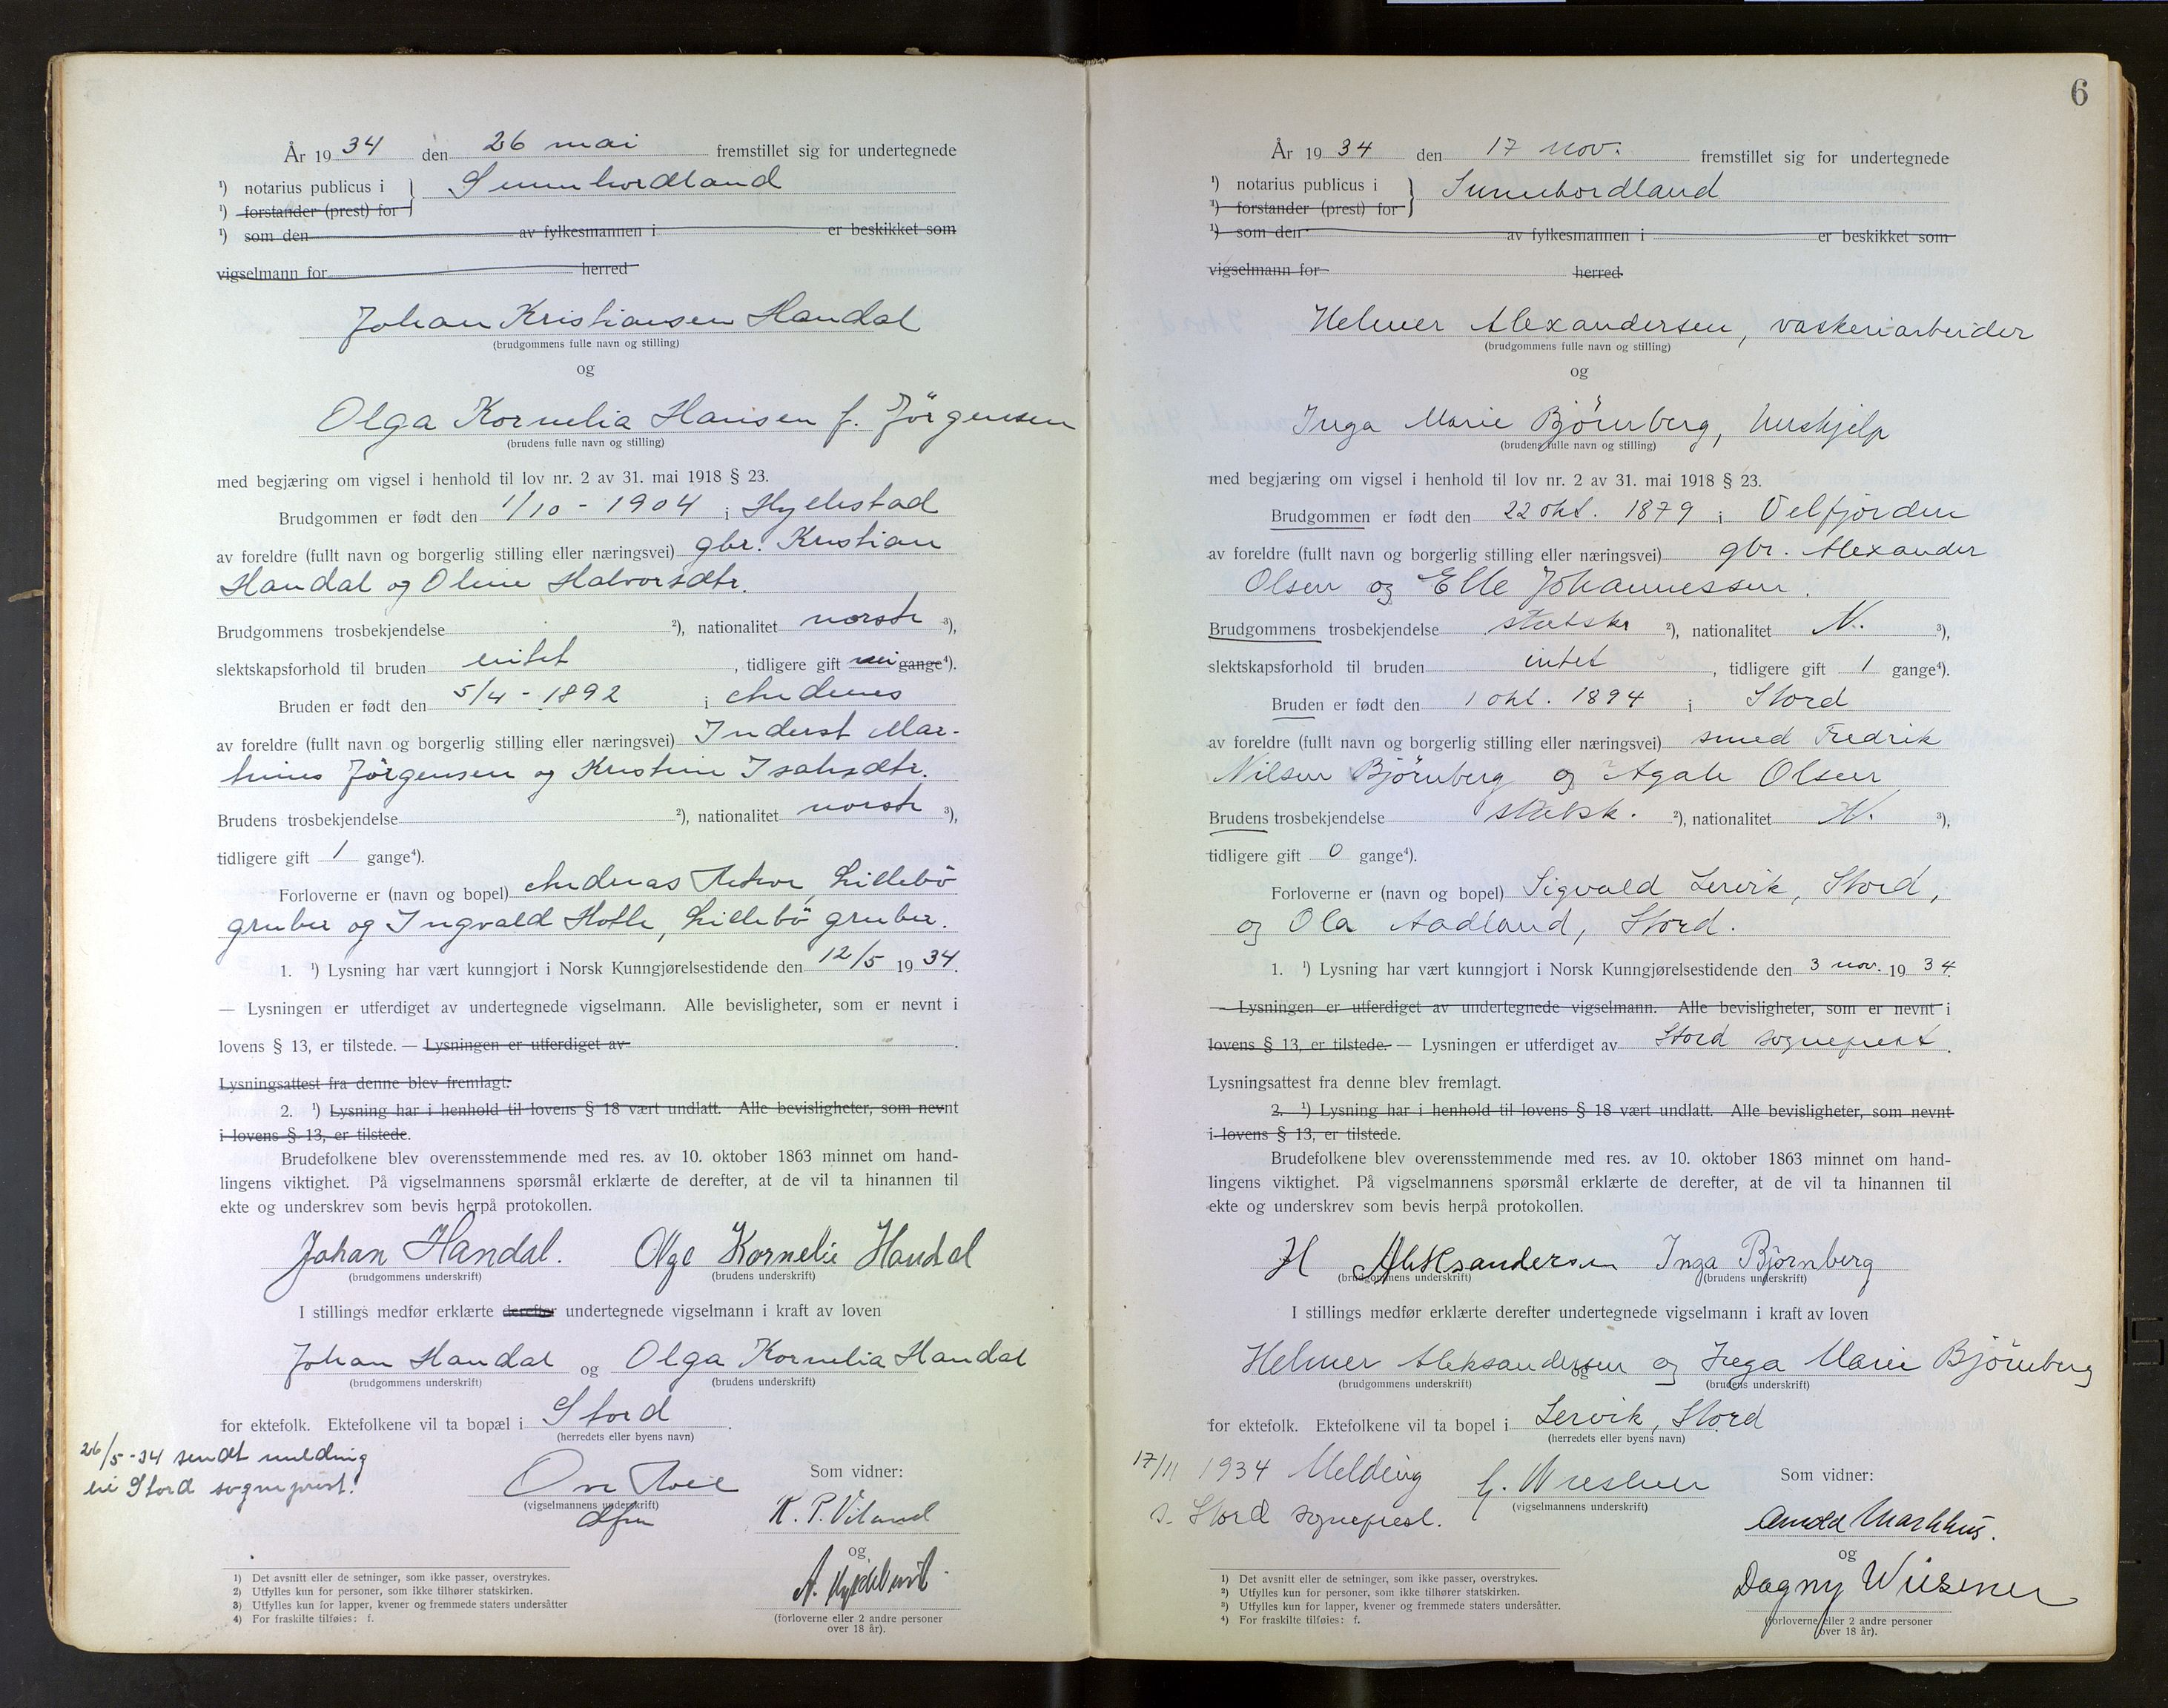 År 19 34 den 26 mai fremstillet sig for undertegnede
¹) notarius publicus i } Sunnhordland
¹) forstander (prest) for
¹) som den av fylkesmannen i er beskikket som
vigselmann for herred
Johan Kristiansen Handal
(brudgommens fulle navn og stilling)
og
Olga Kornelia Hansen f. Jörgensen
(brudens fulle navn og stilling)
med begjæring om vigsel i henhold til lov nr. 2 av 31. mai 1918 § 23.
Brudgommen er født den 1/10 - 1904 i Hyllestad
av foreldre (fullt navn og borgerlig stilling eller næringsvei) gbr. Kristian
Handal og Oline Halvorsdtr.
Brudgommens trosbekjendelse ²), nationalitet norsk ³),
slektskapsforhold til bruden intet, tidligere gift nei gange⁴).
Bruden er født den 5/4 - 1892 i Andenes
av foreldre (fullt navn og borgerlig stilling eller næringsvei) Inderst Mar-
tinus Jörgensen og Kristine Isaksdtr.
Brudens trosbekjendelse ²), nationalitet norsk ³),
tidligere gift 1 gange⁴).
Forloverne er (navn og bopel) Andreas Lillebö
gruber og Ingvald Hotle, Lillebö gruber.
1. ¹) Lysning har vært kunngjort i Norsk Kunngjørelsestidende den 12/5 19 34.
— Lysningen er utferdiget av undertegnede vigselmann. Alle bevisligheter, som er nevnt i
lovens § 13, er tilstede. — Lysningen er utferdiget av .
Lysningsattest fra denne blev fremlagt.
2. ¹) Lysning har i henhold til lovens § 18 vært undlatt. Alle bevisligheter, som nevnt
i lovens § 13, er tilstede.
Brudefolkene blev overensstemmende med res. av 10. oktober 1863 minnet om hand-
lingens viktighet. På vigselmannens spørsmål erklærte de derefter, at de vil ta hinannen til
ekte og underskrev som bevis herpå protokollen.
Johan Handal. Olga Kornelie Handal
(brudgommens underskrift) (brudens underskrift)
I stillings medfør erklærte derefter undertegnede vigselmann i kraft av loven
Johan Handal og Olga Kornelia Handal
(brudgommens underskrift) (brudens underskrift)
for ektefolk. Ektefolkene vil ta bopæl i Stord.
(herredets eller byens navn)
26/5-34 sendt melding
til Stord sogneprest.
Som vidner:
(vigselmannens underskrift)
K. P. Viland
og
A.
(forloverne eller 2 andre personer
over 18 år).
1) Det avsnitt eller de setninger, som ikke passer, overstrykes.
2) Utfylles kun for personer, som ikke tilhører statskirken.
3) Utfylles kun for lapper, kvener og fremmede staters undersåtter
4) For fraskilte tilføies: f.
6
År 19 34 den 17 nov. fremstillet sig for undertegnede
¹) notarius publicus i } Sunnhordland
¹) forstander (prest) for
¹) som den av fylkesmannen i er beskikket som
vigselmann for herred
Helmer Alexandersen, vaskeriarbeider
(brudgommens fulle navn og stilling)
og
Inga Marie Björnberg, hushjelp
(brudens fulle navn og stilling)
med begjæring om vigsel i henhold til lov nr. 2 av 31. mai 1918 § 23.
Brudgommen er født den 22 okt. 1879 i Velfjorden
av foreldre (fullt navn og borgerlig stilling eller næringsvei) gbr. Alexander
Olsen og Elle Johannessen.
Brudgommens trosbekjendelse statskr ²), nationalitet N. ³),
slektskapsforhold til bruden intet, tidligere gift 1 gange⁴).
Bruden er født den 1 okt. 1894 i Stord
av foreldre (fullt navn og borgerlig stilling eller næringsvei) smed Fredrik
Nilsen Björnberg og Agate Olsen
Brudens trosbekjendelse statsk. ²), nationalitet N. ³),
tidligere gift 0 gange⁴).
Forloverne er (navn og bopel) Sigvald Lervik, Stord,
og Ola Aadland, Stord.
1. ¹) Lysning har vært kunngjort i Norsk Kunngjørelsestidende den 3 nov. 19 34.
— Lysningen er utferdiget av undertegnede vigselmann. Alle bevisligheter, som er nevnt i
lovens § 13, er tilstede. — Lysningen er utferdiget av Stord sogneprest.
Lysningsattest fra denne blev fremlagt.
2. ¹) Lysning har i henhold til lovens § 18 vært undlatt. Alle bevisligheter, som nevnt
i lovens § 13, er tilstede.
Brudefolkene blev overensstemmende med res. av 10. oktober 1863 minnet om hand-
lingens viktighet. På vigselmannens spørsmål erklærte de derefter, at de vil ta hinannen til
ekte og underskrev som bevis herpå protokollen.
H Aleksandersen Inga Bjørnberg
(brudgommens underskrift) (brudens underskrift)
I stillings medfør erklærte derefter undertegnede vigselmann i kraft av loven
Helmer Aleksandersen og Inga Marie Björnberg
og
(brudgommens underskrift) (brudens underskrift)
for ektefolk. Ektefolkene vil ta bopel i Lervik, Stord
(herredets eller byens navn)
17/11 1934 Melding
s. Stord sogneprest.
G. Wiesener
(vigselmannens underskrift)
Som vidner:
Arnold Markhus.
og
Dagny Wiesener
(forloverne eller 2 andre personer
over 18 år).
1) Det avsnitt eller de setninger, som ikke passer, overstrykes.
2) Utfylles kun for personer, som ikke tilhører statskirken.
3) Utfylles kun for lapper, kvener og fremmede staters undersåtter.
4) For fraskilte tilføies: f.